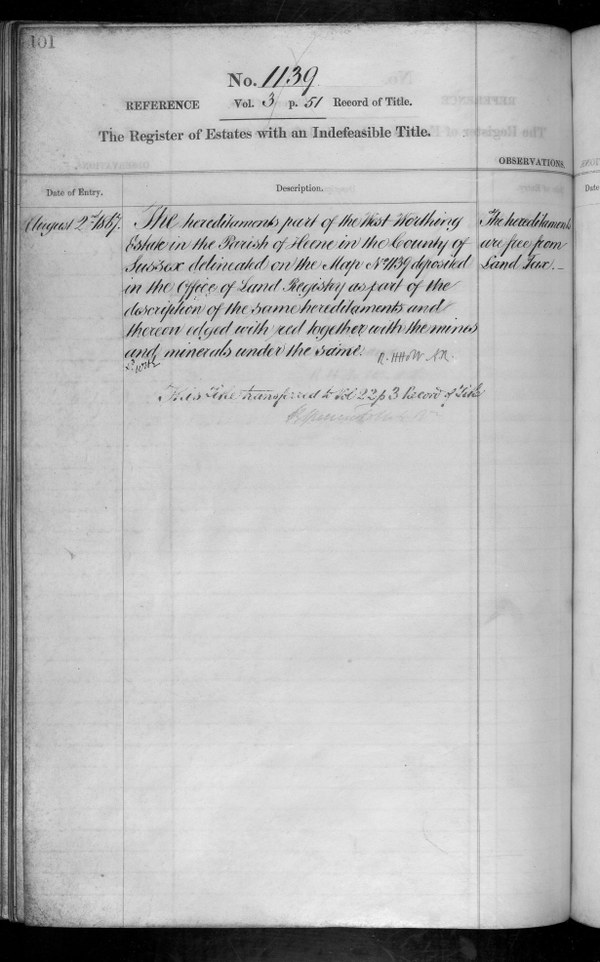 101
No. 1139
REFERENCE Vol. 3 p. 51 Record of Title.
The Register of Estates with an Indefeasible Title.
OBSERVATIONS.
Date of Entry.
Description.
August 2nd 1867.
The hereditaments part of the West Worthing
Estate in the Parish of Heene in the County of
Sussex delineated on the Map No 1139 deposited
in the Office of Land Registry as part of the
description of the same hereditaments and
thereon edged with red together with the mines
and minerals under the same.
This Title transferred to Vol 22 p 3 Record of Title
The hereditaments
are free from
Land Tax. —
Date